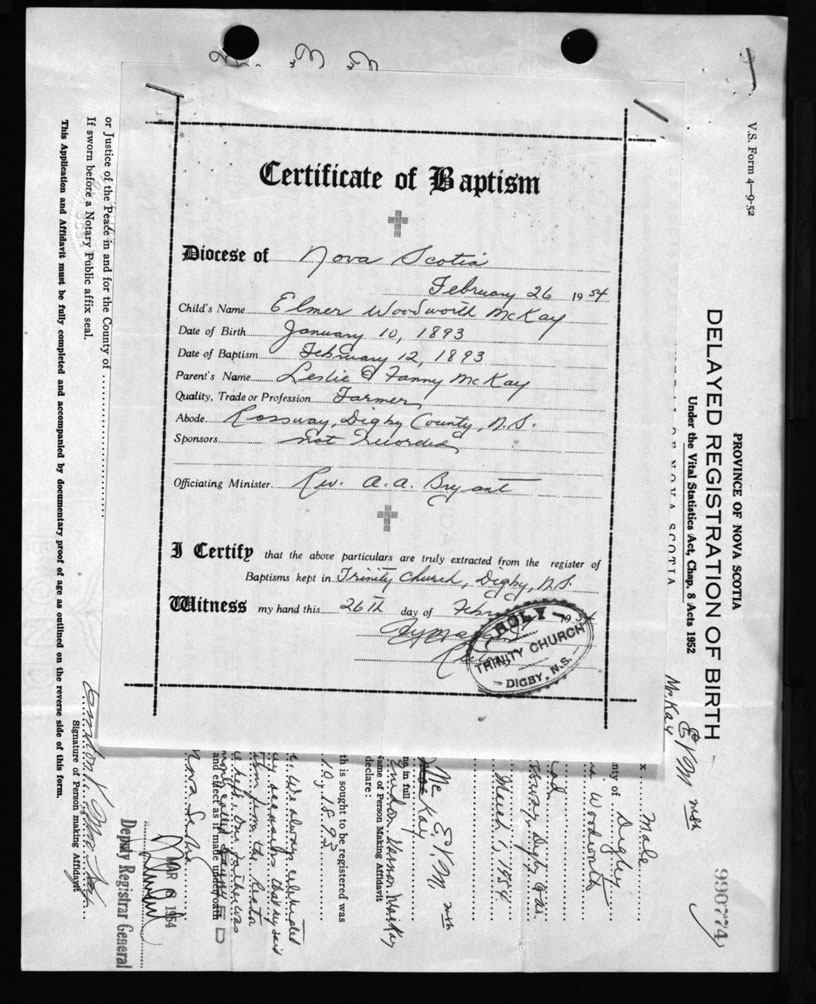 Certificate of Baptism
Diocese of Nova Scotia
February 26 1954
Child's Name Elmer Woodworth McKay
Date of Birth January 10, 1893
Date of Baptism February 12, 1893
Parent's Name Leslie & Fanny McKay
Quality, Trade or Profession Farmer
Abode Rossway, Digby County, N.S.
Sponsors not recorded
Officiating Minister Rev. A. A. Bryant
I Certify that the above particulars are truly extracted from the register of
Baptisms kept in Trinity Church, Digby, N.S.
Witness my hand this 26th day of 1954
HOLY
TRINITY CHURCH
DIGBY, N.S.
V.S. Form 4—9-52
PROVINCE OF NOVA SCOTIA
DELAYED REGISTRATION OF BIRTH
Under the Vital Statistics Act, Chap. 8 Acts 1952
OF NOVA SCOTIA
990774
McKay
EVM
x Male
nty of Digby
Woodworth
Digby Co.
March 1, 1954
Mc EVM
Kay
me in full
ame of Person Making Affidavit
declare :
th is sought to be registered was
10, 1893
We always celebrated
from the Rector
and effect as if made under oath
Nova Scotia
MAR 8 1954
Deputy Registrar General
or Justice of the Peace in and for the County of
If sworn before a Notary Public affix seal.
Signature of Person making Affidavit
This Application and Affidavit must be fully completed and accompanied by documentary proof of age as outlined on the reverse side of this form.